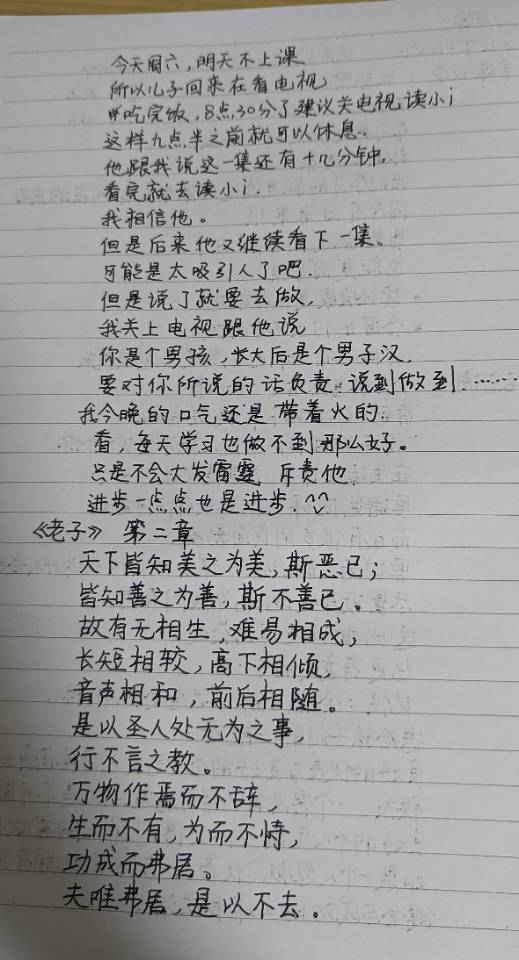 今天周六，明天不上课
所以儿子回来在看电视
吃完饭，8点30分了建议关电视读小i
这样九点半之前就可以休息。
他跟我说这一集还有十几分钟，
看完就去读小i.
我相信他。
但是后来他又继续看下一集。
可能是太吸引人了吧.
但是说了就要去做，
我关上电视跟他说
你是个男孩，长大后是个男子汉.
要对你所说的话负责. 说到做到.……
我今晚的口气还是带着火的.
看，每天学习也做不到那么好。
只是不会大发雷霆 斥责他.
进步一点点也是进步. ^^
《老子》 第二章
天下皆知美之为美，斯恶已；
皆知善之为善，斯不善已。
故有无相生，难易相成；
长短相较，高下相倾，
音声相和，前后相随。
是以圣人处无为之事，
行不言之教。
万物作焉而不辞，
生而不有，为而不恃，
功成而弗居。
夫唯弗居，是以不去。